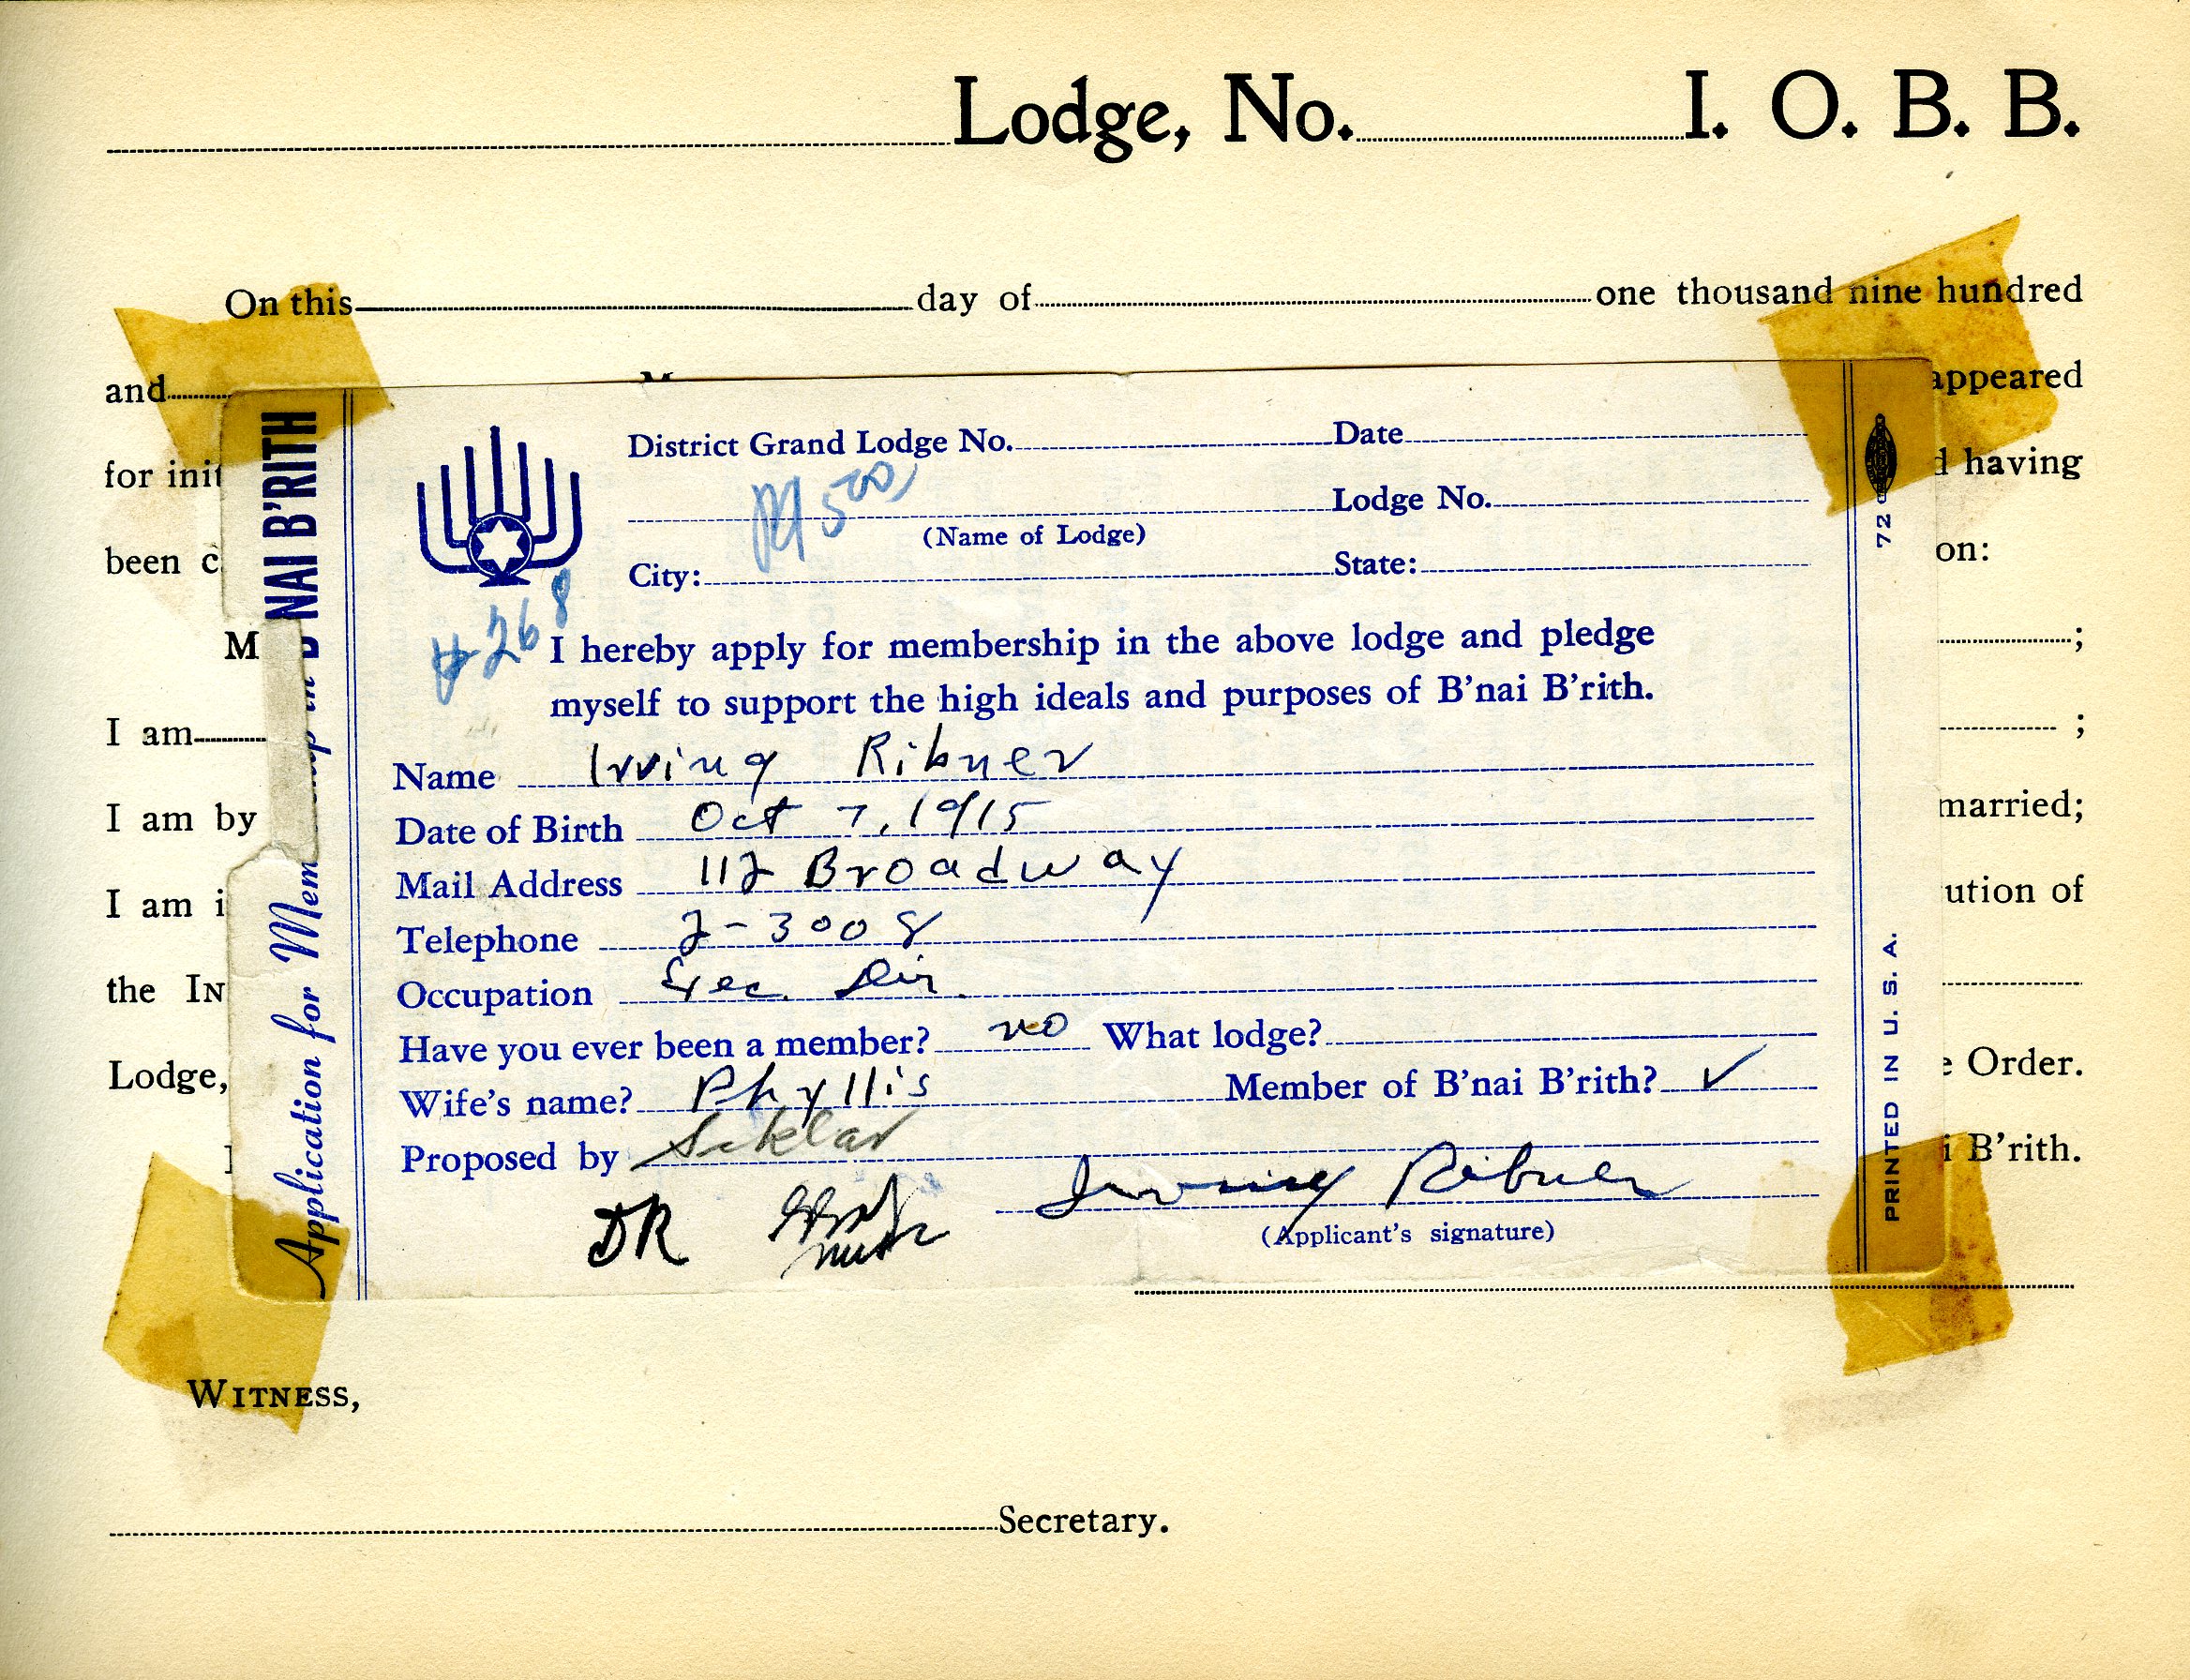 Lodge, No. I. O. B. B.
On this day of one thousand nine hundred
and appeared
for init d having
been c on:
M ;
I am ;
I am by married;
I am i ution of
the IN
Lodge, e Order.
i B'rith.
Application for Mem B'NAI B'RITH
District Grand Lodge No. Date
500
Lodge No.
(Name of Lodge)
City: State:
#268
I hereby apply for membership in the above lodge and pledge
myself to support the high ideals and purposes of B'nai B'rith.
Name Irving Ribner
Date of Birth Oct 7, 1915
Mail Address 112 Broadway
Telephone 2-3008
Occupation Exec. Dir.
Have you ever been a member? no What lodge?
Wife's name? Phyllis Member of B'nai B'rith? ✓
Proposed by Seklar
DR
Irving Ribner
(Applicant's signature)
72
PRINTED IN U. S. A.
WITNESS,
Secretary.